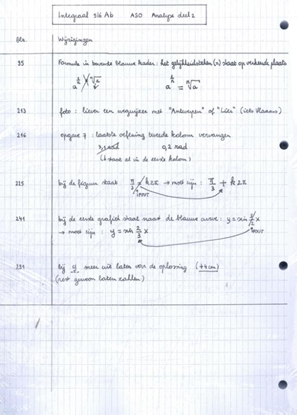 Integraal 5/6 Ab ASO Analyse deel 2
Blz. Wijzigingen
95 Formule in bovenste blauwe kader : het gelijkheidsteken (=) staat op verkeerde plaats
213 foto : liever een wegwijzer met "Antwerpen" of "Lier" (iets Vlaams)
216 opgave 7 : laatste oefening tweede kolom vervangen
0,2 rad
(staat al in de eerste kolom)
225 bij de figuur staat π/2 / k2π → moet zijn : π/2 + k2π
FOUT
241 bij de eerste grafiek staat naast de blauwe curve : y = sin 2/3 x
→ moet zijn : y = sin 2/3 x
FOUT
251 bij y meer wit laten van de oplossing (±4cm)
(niet gewoon laten vallen)